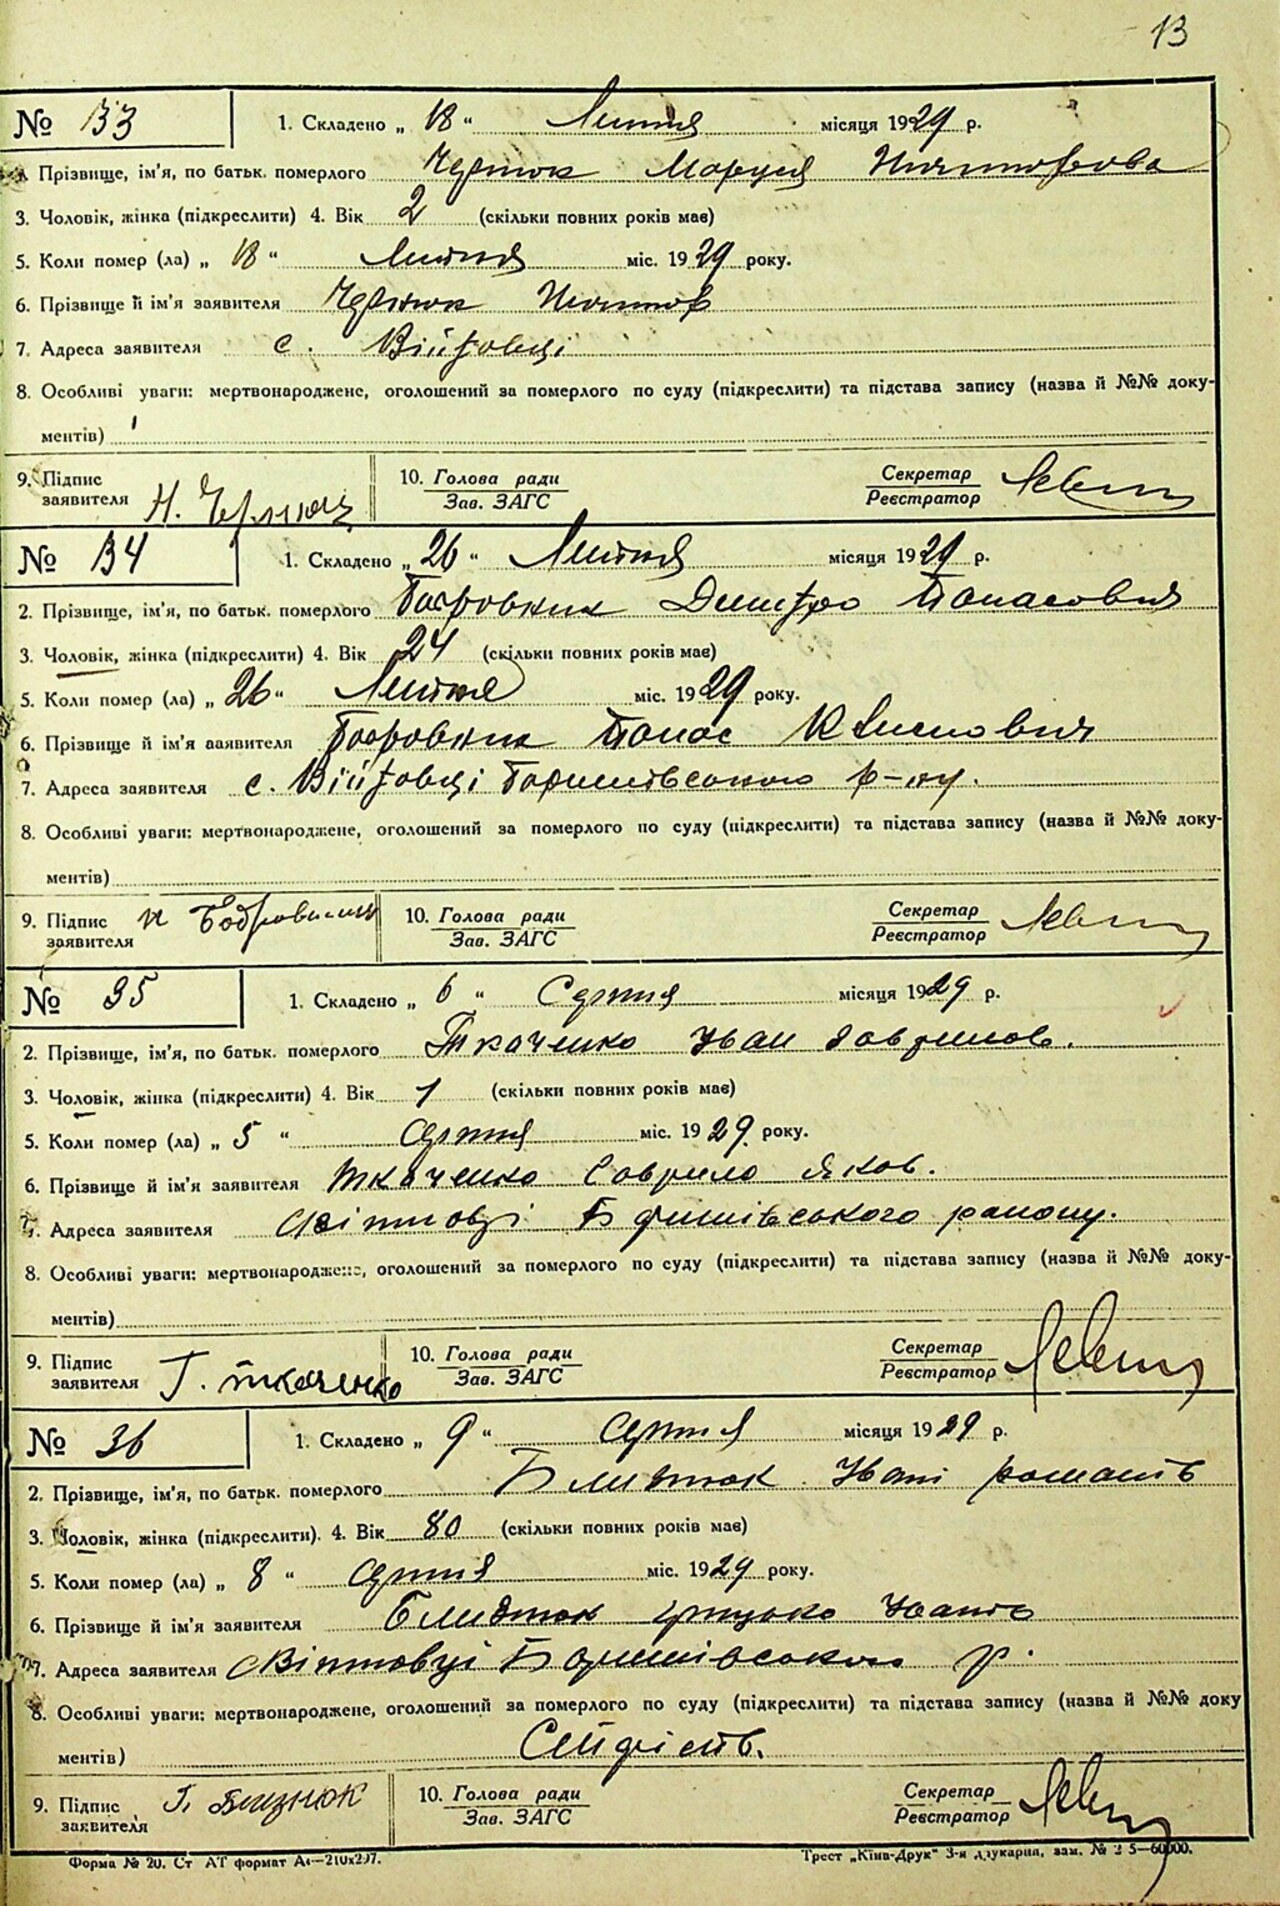 13
№ 33 1. Складено „ 18 “ Липня місяця 1929 р.
Прізвище, ім'я, по батьк. померлого Чернюк Маруся
3. Чоловік, жінка (підкреслити) 4. Вік 2 (скільки повних років має)
5. Коли помер (ла) „ 18 “ Липня міс. 1929 року.
6. Прізвище й ім'я заявителя Чернюк
7. Адреса заявителя с. Війтовці
8. Особливі уваги: мертвонароджене, оголошений за померлого по суду (підкреслити) та підстава запису (назва й №№ доку-
ментів)
9. Підпис 10. Голова ради Секретар
заявителя Зав. ЗАГС Реєстратор
Н. Чернюк
№ 34 1. Складено „ 26 “ Липня місяця 1929 р.
2. Прізвище, ім'я, по батьк. померлого Бобровник Дмитро Панасович
3. Чоловік, жінка (підкреслити) 4. Вік 24 (скільки повних років має)
5. Коли помер (ла) „ 26 “ Липня міс. 1929 року.
6. Прізвище й ім'я заявителя Бобровник Панас
7. Адреса заявителя с. Війтовці Баришівського р-ну.
8. Особливі уваги: мертвонароджене, оголошений за померлого по суду (підкреслити) та підстава запису (назва й №№ доку-
ментів)
9. Підпис П Бобровник 10. Голова ради Секретар
заявителя Зав. ЗАГС Реєстратор
№ 35 1. Складено „ 6 “ Серпня місяця 1929 р.
2. Прізвище, ім'я, по батьк. померлого Ткаченко Іван Гаврилов.
3. Чоловік, жінка (підкреслити) 4. Вік 1 (скільки повних років має)
5. Коли помер (ла) „ 5 “ серпня міс. 1929. року.
6. Прізвище й ім'я заявителя Ткаченко Гаврило Яков.
7. Адреса заявителя Баришівського району.
8. Особливі уваги: мертвонароджене, оголошений за померлого по суду (підкреслити) та підстава запису (назва й №№ доку-
ментів)
9. Підпис 10. Голова ради Секретар
заявителя Г. Ткаченко Зав. ЗАГС Реєстратор
№ 36 1. Складено „ 9 “ серпня місяця 1929 р.
2. Прізвище, ім'я, по батьк. померлого Близнюк Іван Романів
3. Чоловік, жінка (підкреслити). 4. Вік 80 (скільки повних років має)
5. Коли помер (ла) „ 8 “ серпня міс. 1929 року.
6. Прізвище й ім'я заявителя Близнюк Грицько Іванів
7. Адреса заявителя Баришівського р.
8. Особливі уваги: мертвонароджене, оголошений за померлого по суду (підкреслити) та підстава запису (назва й №№ доку
ментів)
9. Підпис Г. Близнюк 10. Голова ради Секретар
заявителя Зав. ЗАГС Реєстратор
Форма № 20. Ст АТ формат А4—210х297.
Трест „Київ-Друк“ 3-я друкарня, зам. №